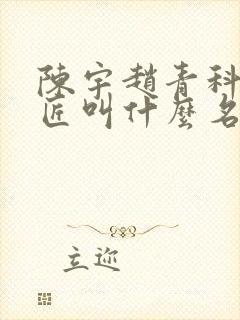 陳宇趙青科
匠叫什麼名
立迩